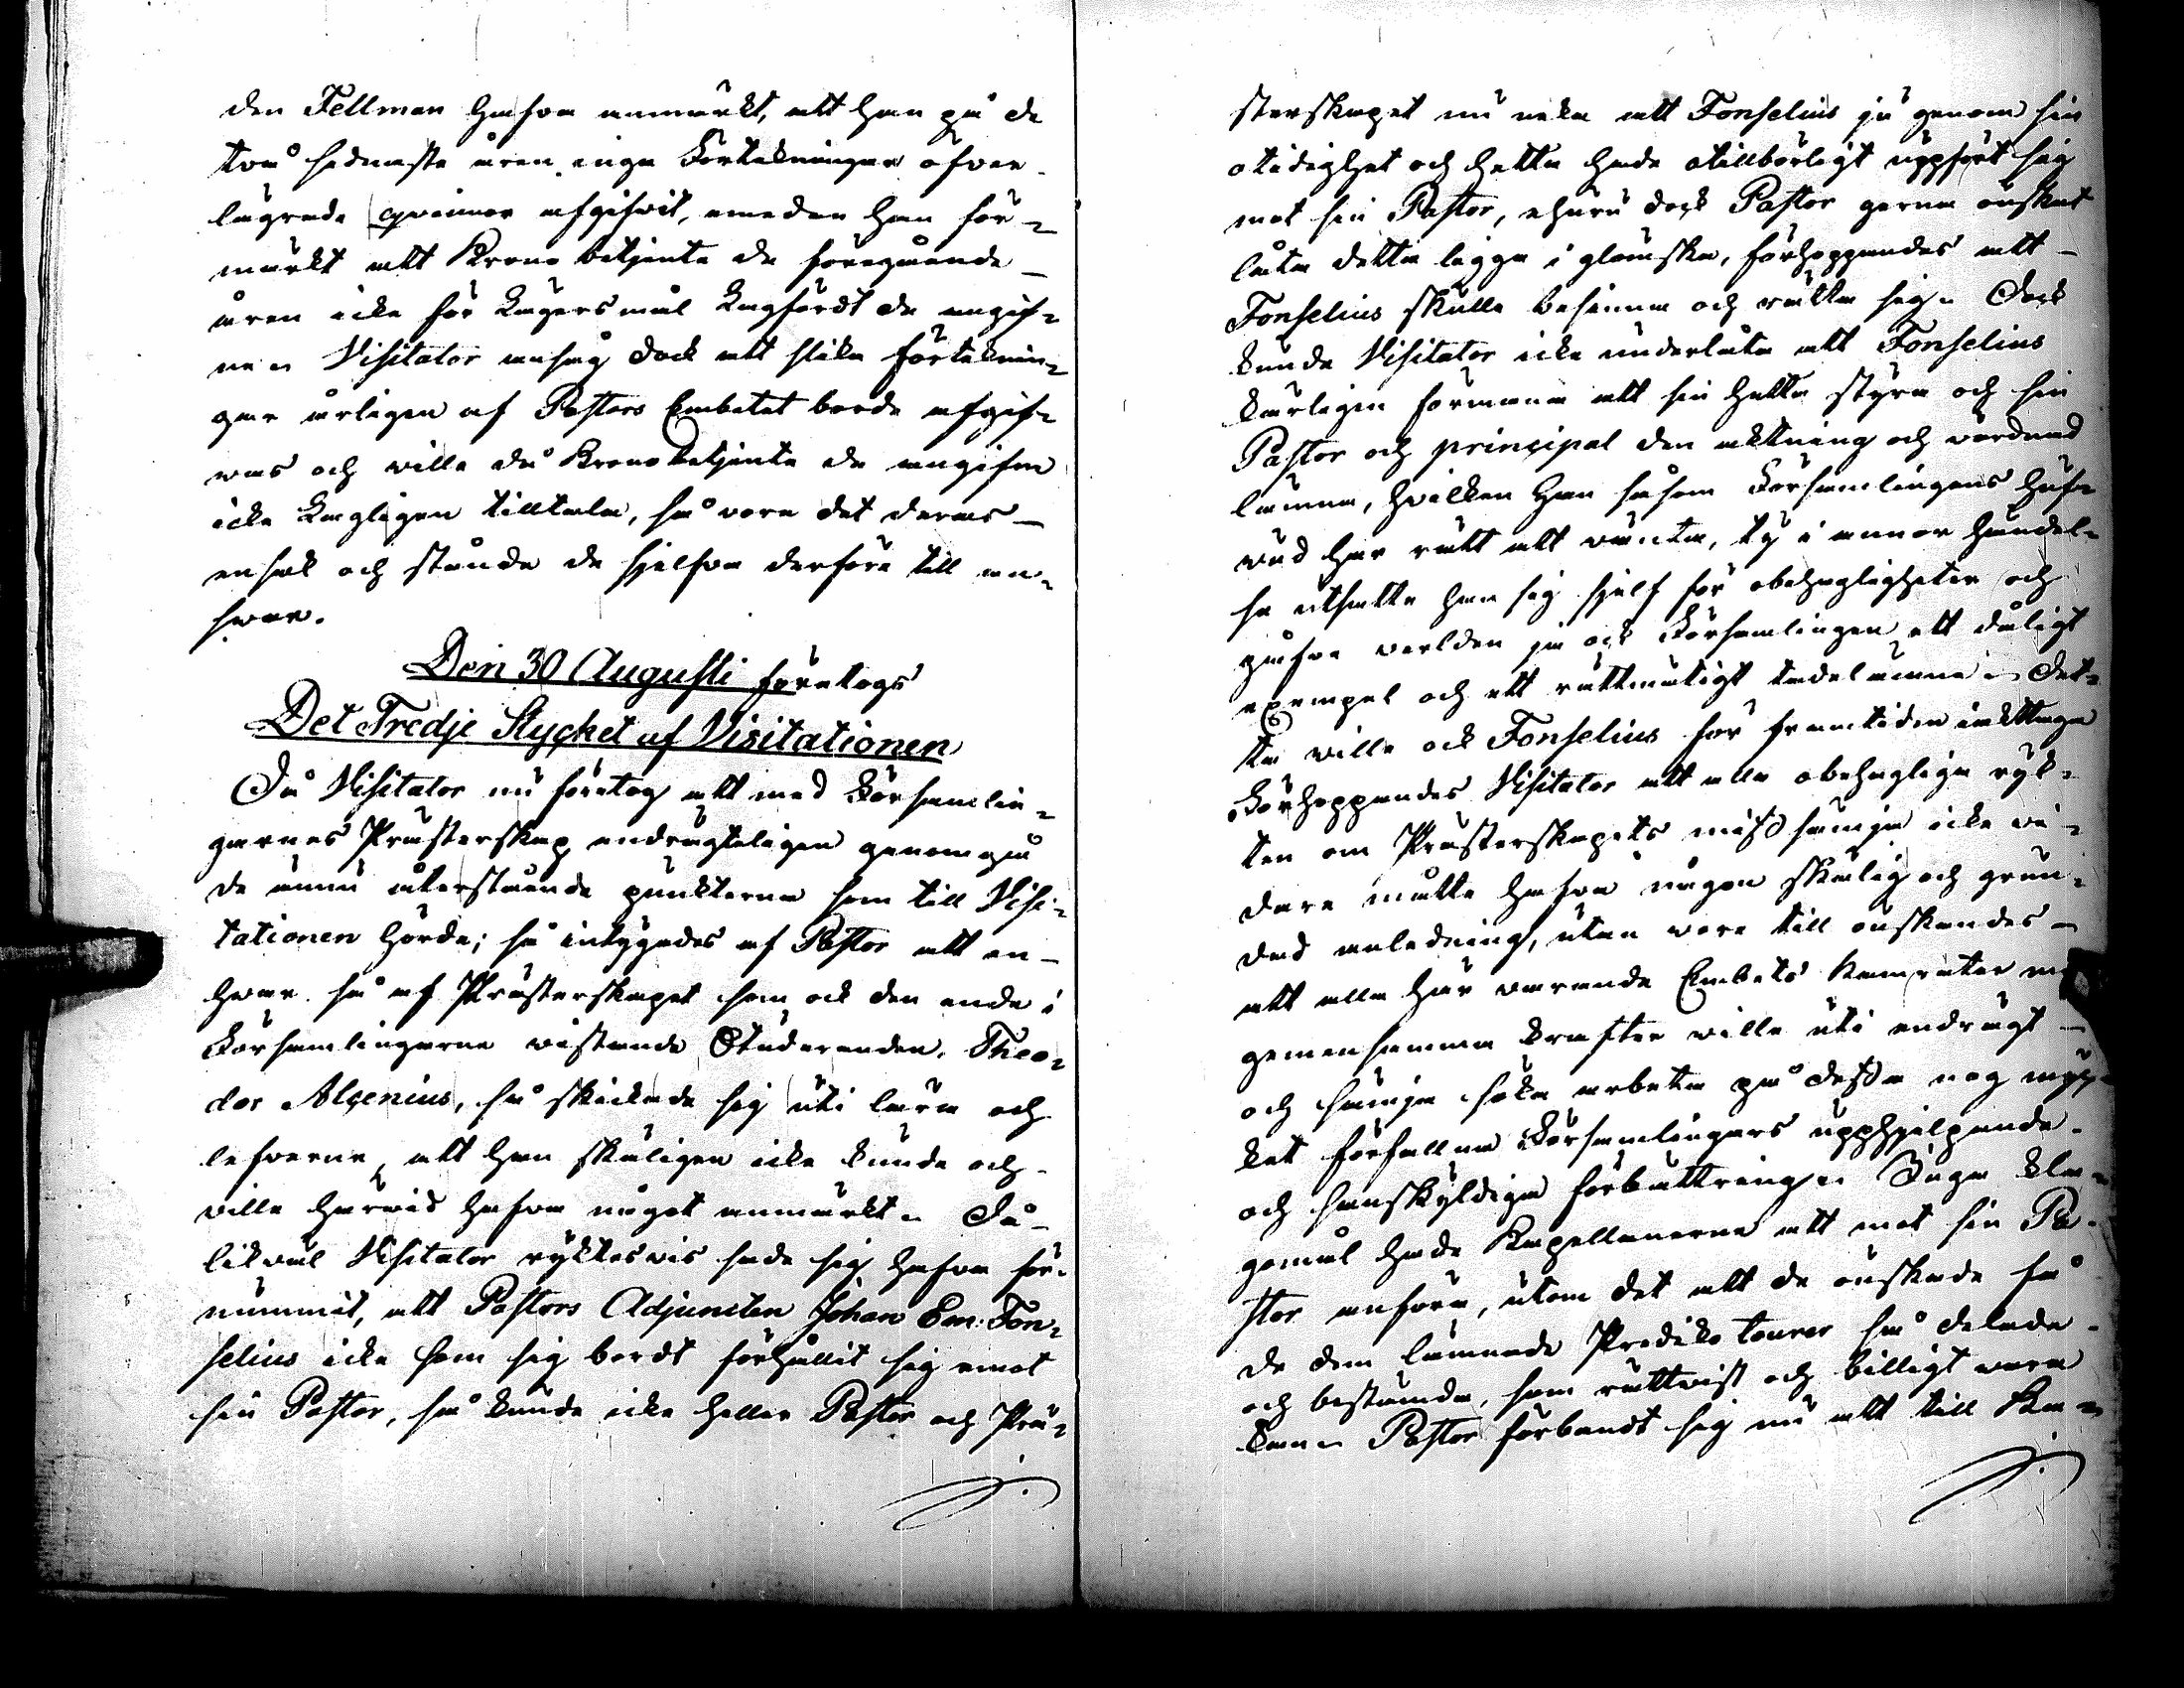 den Fellman hafva anmärkt, att han på de
två sednaste åren inga Förtekningar öfver
lägrade qvinnor afgifvit, emedan han för-
märkt att Krono betjente de föregående
åren icke för Lägersmål Lagfördt de angif-
ne. Visitator ansåg dock att slika förteknin-
gar årligen af Pastors Embetet borde afgif-
vas och ville då Kronobetjente de angifna
icke Lagligen tilltala, så vore det deras
ensak och stånde de sjelfva derföre till an-
svar.
Den 30 Augusti företogs
Det Tredje Stycket af Visitationen
Då Visitator nu företog att med Församlin-
garnes Prästerskap endrägteligen genomgå
de ännu återstående punkterna som till Visi-
tationen hörde; så intygades af Pastor att en-
hvar så af Prästerskapet som ock den ende i
Församlingarne vistande Studeranden, Theo-
dor Alcenius, så skickade sig uti lära och
lefverne, att han skäligen icke kunde och
ville härvid hafva något anmärkt. Då
likväl Visitator ryktesvis sade sig hafva för-
nummit, att Pastors Adjuncten Johan Em: Fon-
selius icke som sig bordt förhållit sig emot
sin Pastor, så kunde icke heller Pastor och Prä-
sterskapet nu neka att Fonselius ju genom sin
otidighet och hetta hade otillbörligt uppfört sig
mot sin Pastor, ehuru dock Pastor gerna önskat
låta detta ligga i glömska, förhoppandes att
Fonselius skulle besinna och rätta sig. Dock
kunde Visitator icke underlåta att Fonselius
kärligen förmana att sin hetta styra och sin
Pastor och principal den aktning och vördnad
lämna, hvilken Han såsom Församlingens huf-
vud har rätt att vänta, ty i annor händel-
se utsatte han sig sjelf för obehagligheter och
gåfve verlden ja ock Församlingen ett dåligt
exempel och ett rättmätigt tadelämne. Det-
ta ville ock Fonselius för framtiden iakttaga
Förhoppandes Visitator att alla obehagliga ryk-
ten om Prästerskapets missämja icke vi-
dare måtte hafva någon skälig och grun-
dad anledning, utan vore till önskandes
att alla här varande Embets kamrater med
gemensamma krafter ville uti endrägt
och sämja söka arbeta på dessa nog myc-
ket förfallna Församlingars upphjelpande
och hanskyldiga förbättring. Inga kla-
gomål hade Kapellanerna att mot sin Pa-
stor anföra, utom det att de önskade få
de dem lämnade Prediko tourer så delade
och bestämda, som rättvist och billigt vara
kan. Pastor förbandt sig nu att till Ka-